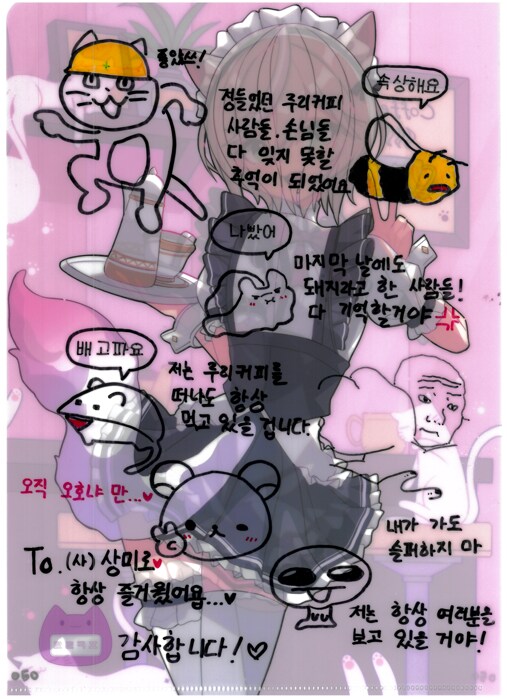 좋았쓰!
속상해요
정들었던 루리커피
사람들. 손님들
다 잊지 못할
추억이 되었어요
나빴어
마지막 날에도
돼지라고 한 사람들!
다 기억할거야
배고파요
저는 루리커피를
떠나도 항상
먹고 있을 겁니다.
오직 오호냐 만...♥
내가 가도
슬퍼하지 마
To. (사) 상미로♥
항상 즐거웠어욥...♥
감사합니다! ♡
저는 항상 여러분을
보고 있을 거야!
050